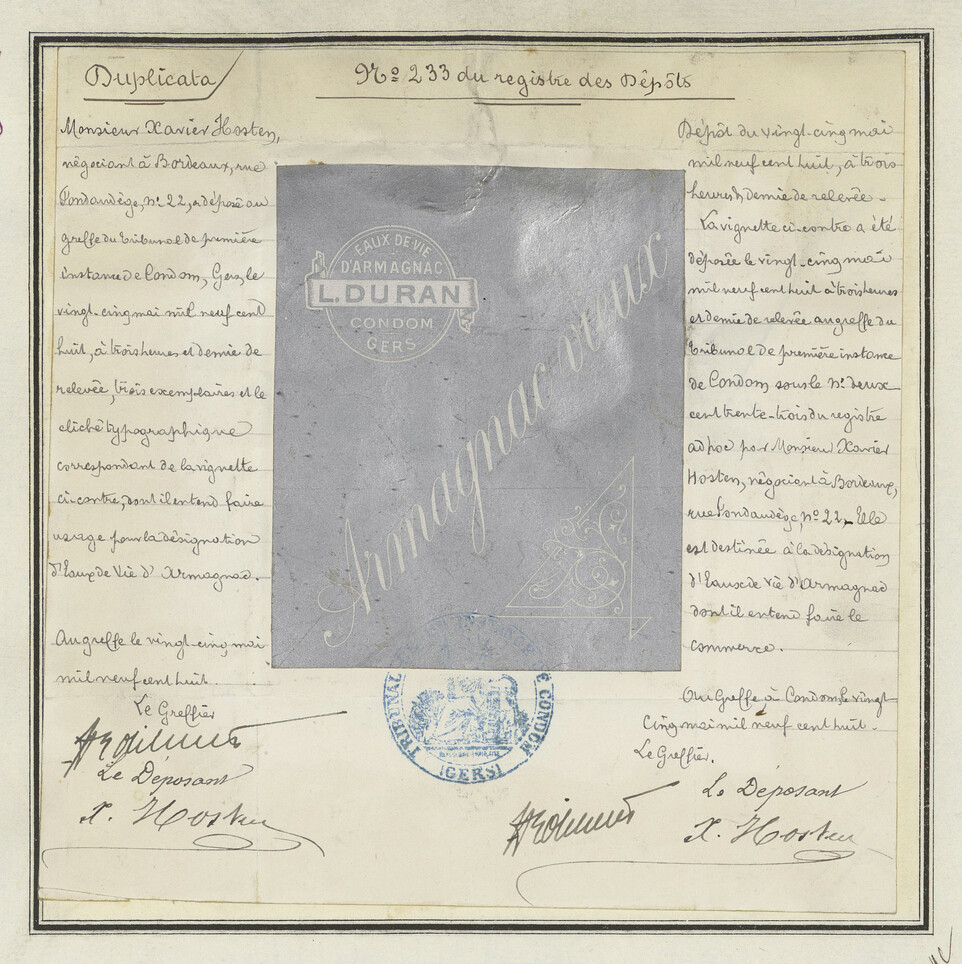 Duplicata
No 233 du registre des Dépôts
Monsieur Xavier Hosten,
négociant à Bordeaux, rue
Fondaudège, no 22, a déposé au
greffe du Tribunal de première
instance de Condom, Gers, le
vingt-cinq mai mil neuf cent
huit, à trois heures et demie de
relevée, trois exemplaires et le
cliché typographique
correspondant de la vignette
ci-contre, dont il entend faire
usage pour la désignation
d'Eaux de Vie d'Armagnac.
Au greffe le vingt-cinq mai
mil neuf cent huit.
Le Greffier
Le Déposant
X. Hosten
EAUX-DE-VIE
D'ARMAGNAC
L. DURAN
CONDOM
GERS
Armagnac vieux
TRIBUNAL DE CONDOM
(GERS)
Dépôt du vingt-cinq mai
mil neuf cent huit, à trois
heures & demie de relevée.
La vignette ci-contre a été
déposée le vingt-cinq mai
mil neuf cent huit à trois heures
et demie de relevée au greffe du
Tribunal de première instance
de Condom sous le no deux
cent trente-trois du registre
ad hoc par Monsieur Xavier
Hosten, négociant à Bordeaux,
rue Fondaudège, no 22. Elle
est destinée à la désignation
d'Eaux de Vie d'Armagnac
dont il entend faire le
commerce.
Au Greffe à Condom le vingt
cinq mai mil neuf cent huit.
Le Greffier.
Le Déposant
X. Hosten